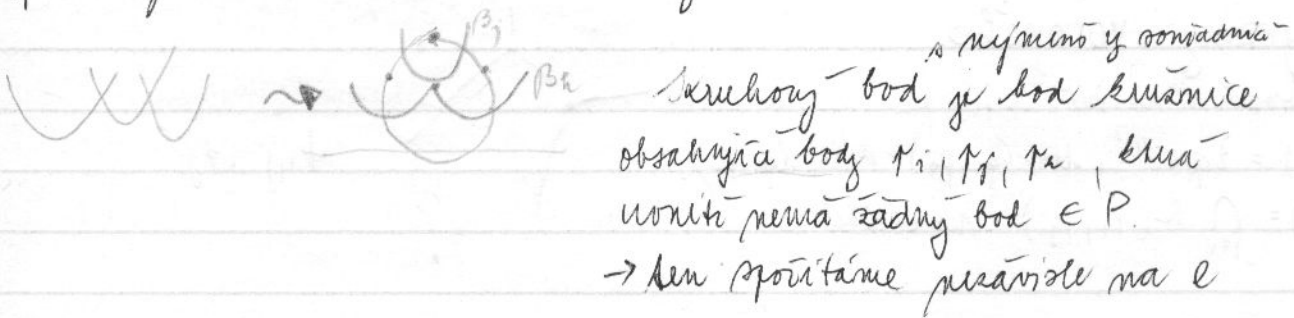 βj
βk
s nejmenší y souřadnicí
kruhový bod je bod kružnice
obsahující body pi, pj, pk, která
uvnitř nemá žádný bod ∈ P.
→ ten spočítáme nezávisle na l